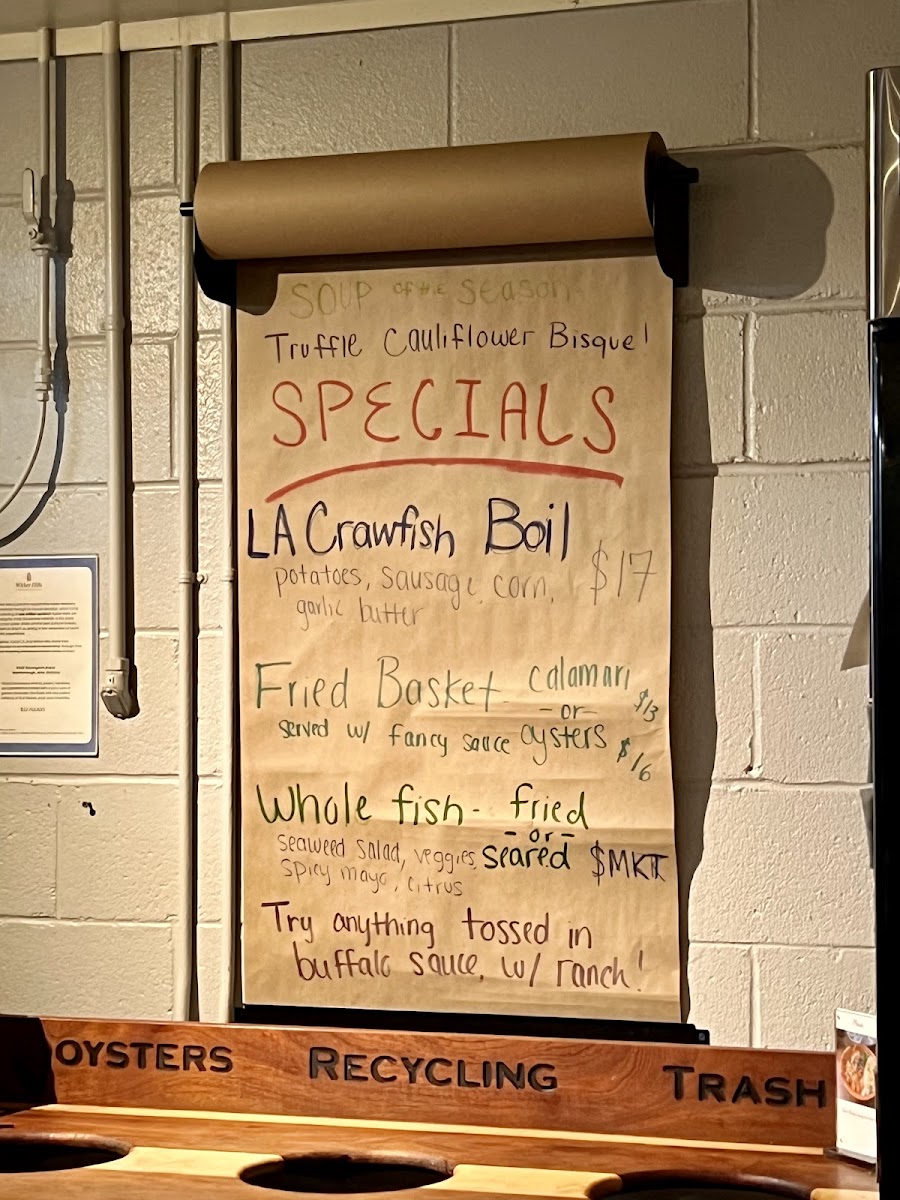 SOUP OF THE SEASON
Truffle Cauliflower Bisque!
SPECIALS
LA Crawfish Boil
potatoes, sausage, corn, $17
garlic butter
Fried Basket - calamari $13
-or-
served w/ fancy sauce oysters $16
Whole fish - fried
-or-
seaweed salad, veggies, seared $MKT
spicy mayo, citrus
Try anything tossed in
buffalo sauce, w/ ranch!
OYSTERS RECYCLING TRASH